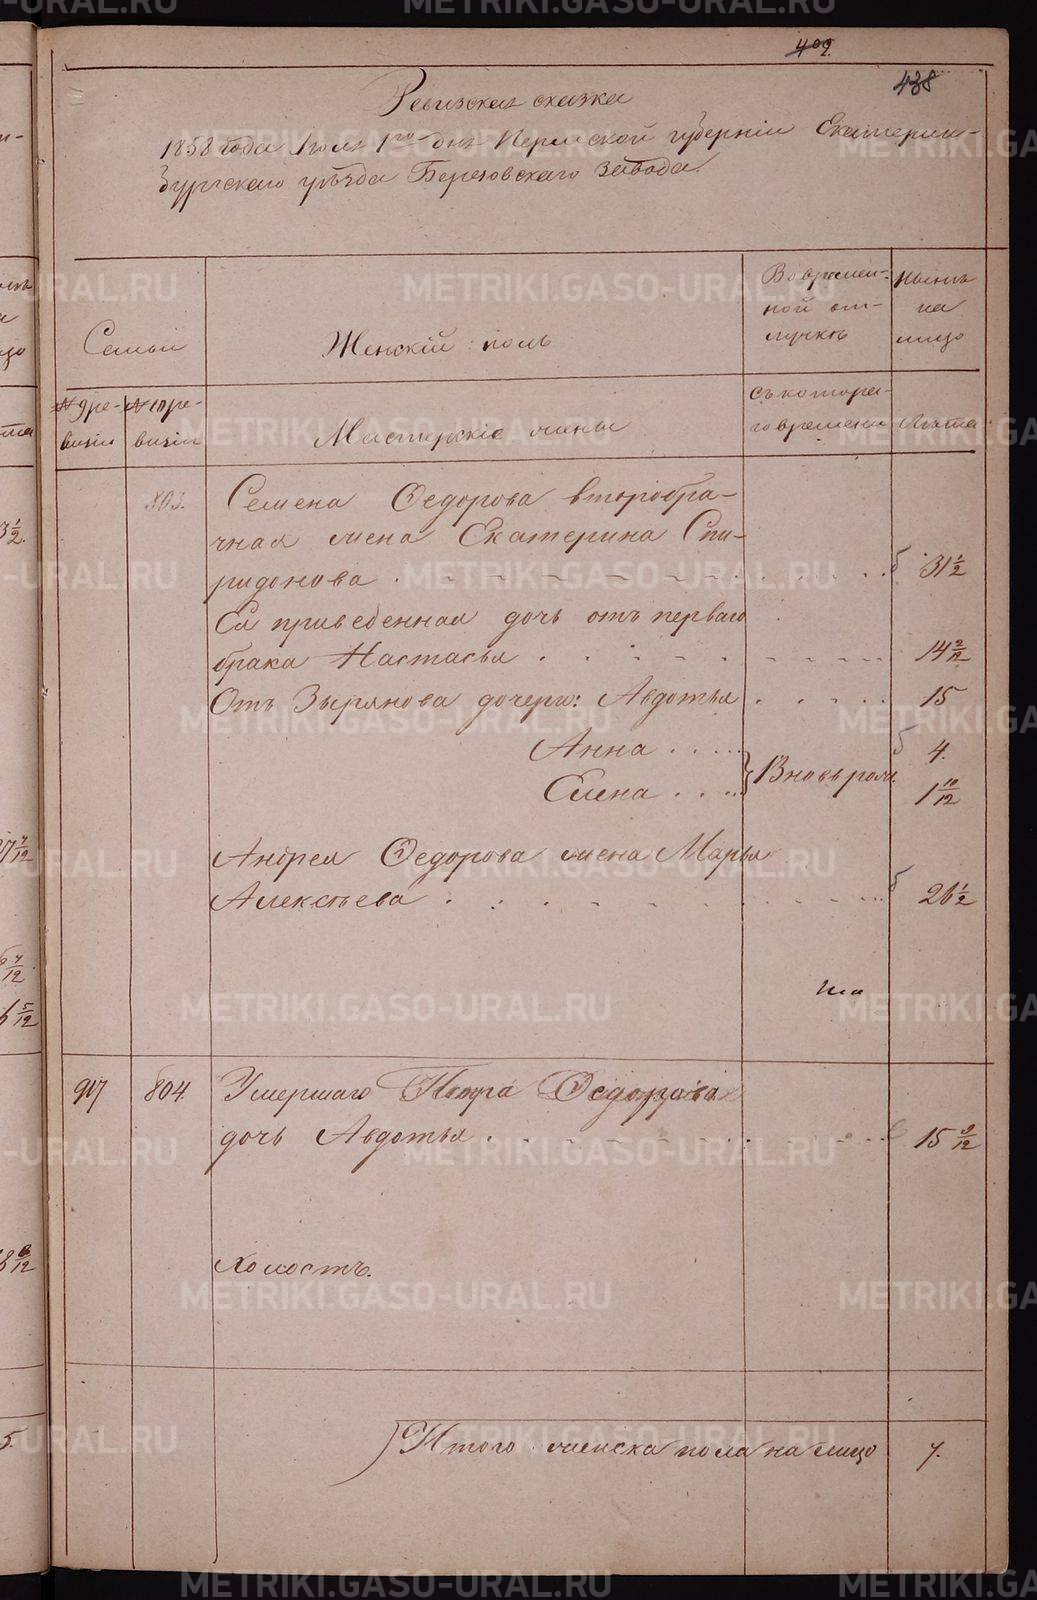 409.
438
Ревизская сказка
1858 года Июля 1го дня Пермской губерніи Екатерин-
бургскаго уѣзда Березовскаго завода.
Семьи
Женскій полъ
Во времен-
ной от-
лучкѣ
Нынѣ
на
лицо
№ 9 ре-
визіи
№ 10 ре-
визіи
Мастерскіе жены
Съ котора-
го времени
Лѣта
803.
Семена Ѳедорова второбра-
чная жена Екатерина Спи-
ридонова 31 1/2
Ея приведенная дочь отъ перваго
брака Настасья 14 2/12
Отъ Зырянова дочери: Авдотья 15
Анна 4.
Елена Вновь рож. 1 10/12
Андрея Ѳедорова жена Марья
Алексѣева 26 1/2
907 804. Умершаго Петра Ѳедорова
дочь Авдотья 15 9/12
Холостъ.
Итого женска пола на лицо 7.